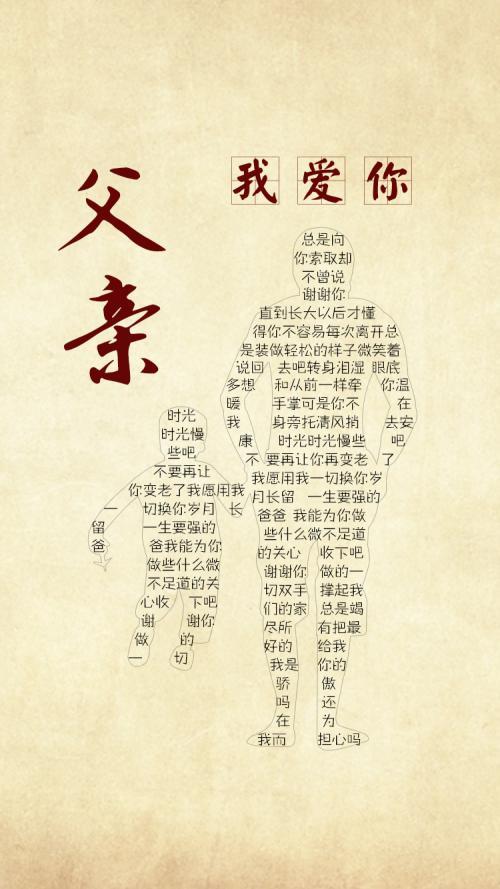 父亲
我爱你
总是向
你索取却
不曾说
谢谢你
直到长大以后才懂
得你不容易每次离开总
是装做轻松的样子微笑着
说回 去吧转身泪湿 眼底
多想 和从前一样牵 你温
暖 手掌可是你不 在
我 身旁托清风捎 去安
康 时光时光慢些 吧
不 要再让你再变老 了
我愿用我一切换你岁
月长留 一生要强的
爸爸 我能为你做
些什么微不足道
的关心 收下吧
谢谢你 做的一
切双手 撑起我
们的家 总是竭
尽所 有把最
好的 给我
我是 你的
骄 傲
吗 还
在 为
我而 担心吗
时光
时光慢
些吧
不要再让
你变老了我愿用我
一 切换你岁月 长
留 一生要强的
爸 爸我能为你
做些什么微
不足道的关
心收 下吧
谢 谢你
做 的
一 切